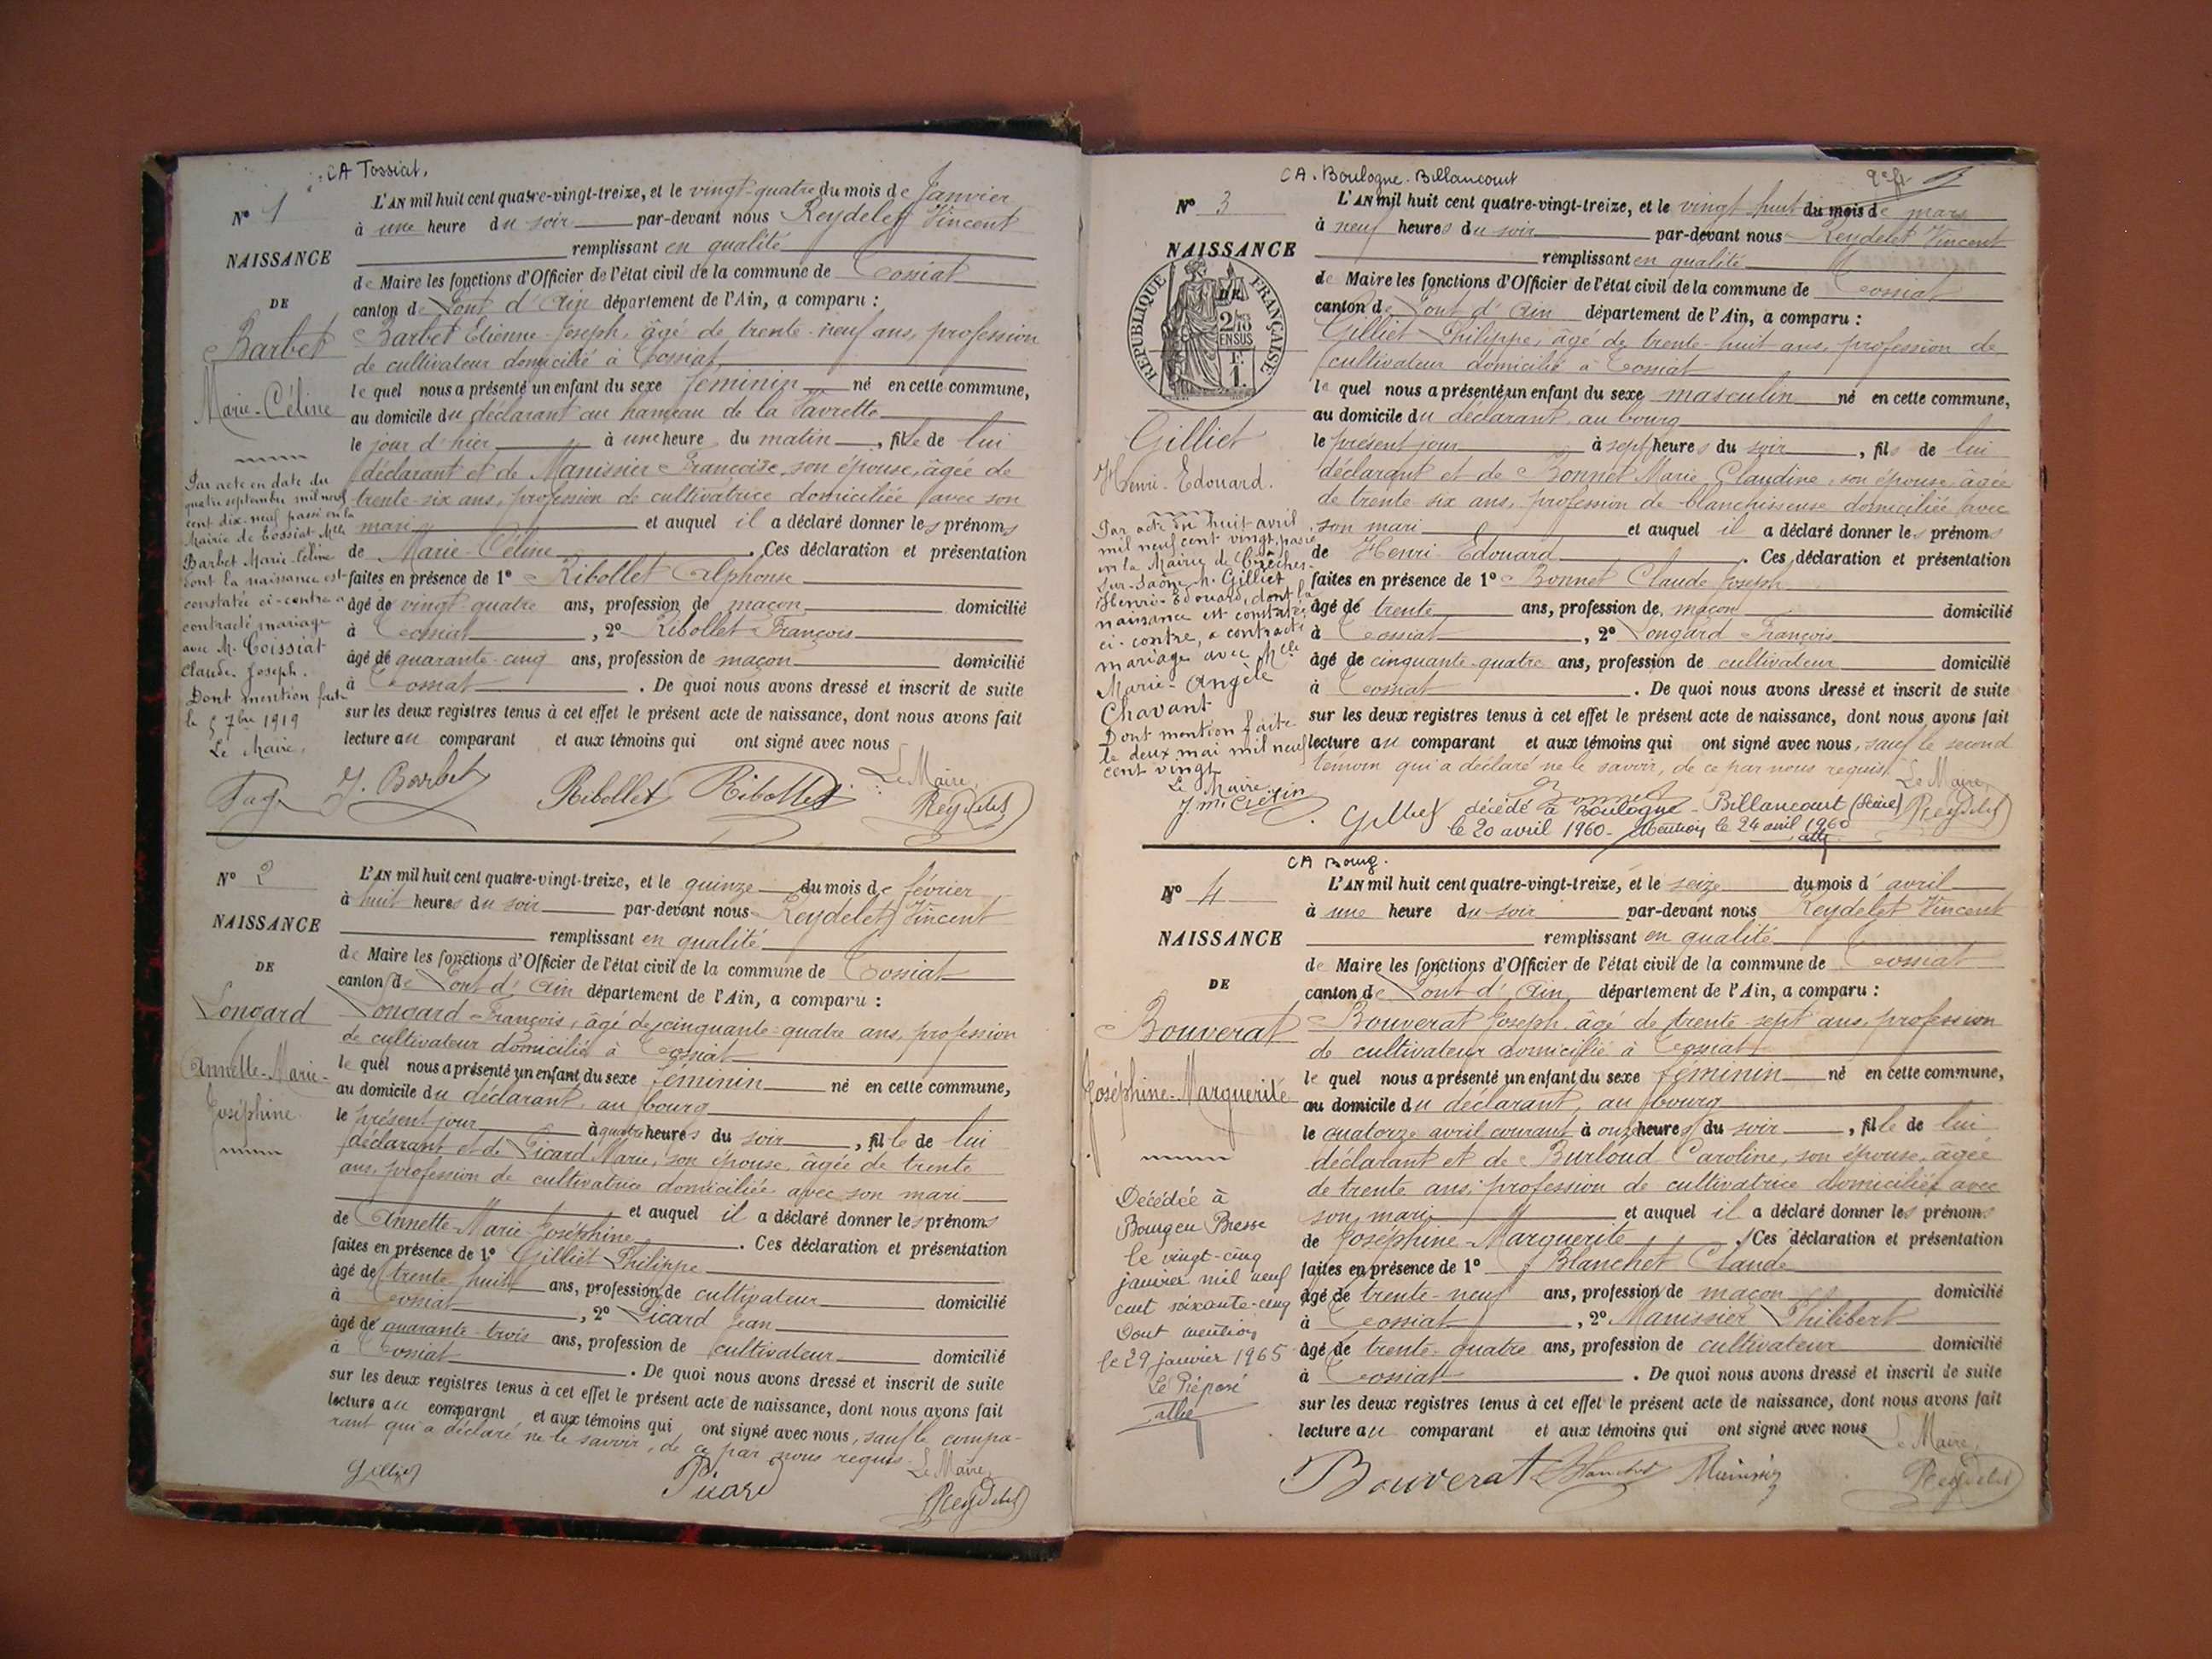 CA Tossiat.
N° 1
NAISSANCE
DE
Barbet
Marie-Céline
Par acte en date du
quatre septembre mil neuf
cent dix-neuf passé en la
Mairie de Tossiat Mlle
Barbet Marie-Céline
dont la naissance est
constatée ci-contre a
contracté mariage
avec M. Coissiat
Claude-Joseph.
Dont mention faite
le 5 7bre 1919
Le Maire,
L'AN mil huit cent quatre-vingt-treize, et le vingt-quatre du mois de Janvier
à une heure du soir par-devant nous Reydelet Vincent
remplissant en qualité
de Maire les fonctions d'Officier de l'état civil de la commune de Tossiat
canton de Pont d'Ain département de l'Ain, a comparu :
Barbet Etienne-Joseph, âgé de trente-neuf ans, profession
de cultivateur domicilié à Tossiat
le quel nous a présenté un enfant du sexe féminin né en cette commune,
au domicile du déclarant au hameau de la Vavrette
le jour d'hier à une heure du matin, fille de lui
déclarant et de Manissier Françoise, son épouse, âgée de
trente-six ans, profession de cultivatrice domiciliée avec son
mari et auquel il a déclaré donner les prénoms
de Marie-Céline. Ces déclaration et présentation
faites en présence de 1° Ribollet Alphonse
âgé de vingt-quatre ans, profession de maçon domicilié
à Tossiat, 2° Ribollet François
âgé de quarante-cinq ans, profession de maçon domicilié
à Tossiat. De quoi nous avons dressé et inscrit de suite
sur les deux registres tenus à cet effet le présent acte de naissance, dont nous avons fait
lecture au comparant et aux témoins qui ont signé avec nous
Le Maire,
J. Barbet Ribollet Ribollet Reydelet
N° 2
NAISSANCE
DE
Longard
Annette-Marie-
Joséphine
L'AN mil huit cent quatre-vingt-treize, et le quinze du mois de février
à huit heures du soir par-devant nous Reydelet Vincent
remplissant en qualité
de Maire les fonctions d'Officier de l'état civil de la commune de Tossiat
canton de Pont d'Ain département de l'Ain, a comparu :
Longard François, âgé de cinquante-quatre ans, profession
de cultivateur domicilié à Tossiat
le quel nous a présenté un enfant du sexe féminin né en cette commune,
au domicile du déclarant, au bourg
le présent jour à quatre heures du soir, fille de lui
déclarant et de Picard Marie, son épouse, âgée de trente
ans, profession de cultivatrice domiciliée avec son mari
et auquel il a déclaré donner les prénoms
de Annette-Marie-Joséphine. Ces déclaration et présentation
faites en présence de 1° Gilliet Philippe
âgé de trente-huit ans, profession de cultivateur domicilié
à Tossiat, 2° Picard Jean
âgé de quarante-trois ans, profession de cultivateur domicilié
à Tossiat. De quoi nous avons dressé et inscrit de suite
sur les deux registres tenus à cet effet le présent acte de naissance, dont nous avons fait
lecture au comparant et aux témoins qui ont signé avec nous, sauf le compa-
rant qui a déclaré ne le savoir, de ce par nous requis.
Le Maire,
Gilliet Picard Reydelet
CA. Boulogne-Billancourt
N° 3
NAISSANCE
DE
REPUBLIQUE FRANÇAISE
Gilliet
Henri-Edouard.
Par acte du huit avril
mil neuf cent vingt, passé
en la Mairie de Crêches-
sur-Saône, M. Gilliet
Henri-Edouard, dont la
naissance est constatée
ci-contre, a contracté
mariage avec Mlle
Marie-Angèle
Chavant
Dont mention faite
le deux mai mil neuf
cent vingt
Le Maire
L'AN mil huit cent quatre-vingt-treize, et le vingt huit du mois de mars
à neuf heures du soir par-devant nous Reydelet Vincent
remplissant en qualité
de Maire les fonctions d'Officier de l'état civil de la commune de Tossiat
canton de Pont d'Ain département de l'Ain, a comparu :
Gilliet Philippe, âgé de trente-huit ans, profession de
cultivateur domicilié à Tossiat
le quel nous a présenté un enfant du sexe masculin né en cette commune,
au domicile du déclarant, au bourg
le présent jour à sept heures du soir, fils de lui
déclarant et de Bonnet Marie Claudine, son épouse, âgée
de trente-six ans, profession de blanchisseuse domiciliée avec
son mari et auquel il a déclaré donner les prénoms
de Henri-Edouard. Ces déclaration et présentation
faites en présence de 1° Bonnet Claude Joseph
âgé de trente ans, profession de maçon domicilié
à Tossiat, 2° Longard François
âgé de cinquante-quatre ans, profession de cultivateur domicilié
à Tossiat. De quoi nous avons dressé et inscrit de suite
sur les deux registres tenus à cet effet le présent acte de naissance, dont nous avons fait
lecture au comparant et aux témoins qui ont signé avec nous, sauf le second
témoin qui a déclaré ne le savoir, de ce par nous requis. Le Maire,
Gilliet Bonnet Reydelet
décédé à Boulogne-Billancourt (Seine)
le 20 avril 1960. Mention le 24 avril 1960
CA Bourg.
N° 4
NAISSANCE
DE
Bouverat
Joséphine-Marguerite
Décédée à
Bourg en Bresse
le vingt-cinq
janvier mil neuf
cent soixante-cinq
Dont mention
le 29 janvier 1965
Le Préposé
L'AN mil huit cent quatre-vingt-treize, et le seize du mois d'avril
à une heure du soir par-devant nous Reydelet Vincent
remplissant en qualité
de Maire les fonctions d'Officier de l'état civil de la commune de Tossiat
canton de Pont d'Ain département de l'Ain, a comparu :
Bouverat Joseph, âgé de trente-sept ans, profession
de cultivateur domicilié à Tossiat
le quel nous a présenté un enfant du sexe féminin né en cette commune,
au domicile du déclarant, au bourg
le quatorze avril courant à onze heures du soir, fille de lui
déclarant et de Burloud Caroline, son épouse, âgée
de trente ans, profession de cultivatrice domiciliée avec
son mari et auquel il a déclaré donner les prénoms
de Joséphine-Marguerite. Ces déclaration et présentation
faites en présence de 1° Blanchet Claude
âgé de trente-neuf ans, profession de maçon domicilié
à Tossiat, 2° Manissier Philibert
âgé de trente-quatre ans, profession de cultivateur domicilié
à Tossiat. De quoi nous avons dressé et inscrit de suite
sur les deux registres tenus à cet effet le présent acte de naissance, dont nous avons fait
lecture au comparant et aux témoins qui ont signé avec nous
Le Maire,
Bouverat Blanchet Manissier Reydelet